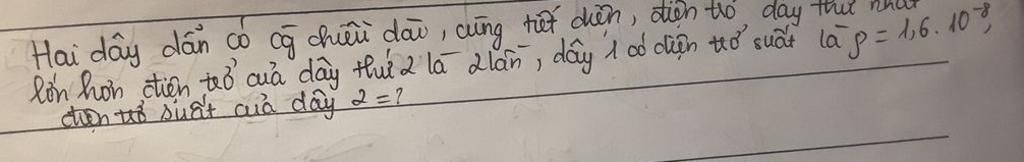 Hai dây dẫn có cg chiều dài, cùng tiết diện, điện trở dây thứ nhất
lớn hơn điện trở của dây thứ 2 là 2 lần, dây 1 có điện trở suất là ρ = 1,6.10⁻⁸,
điện trở suất của dây 2 = ?